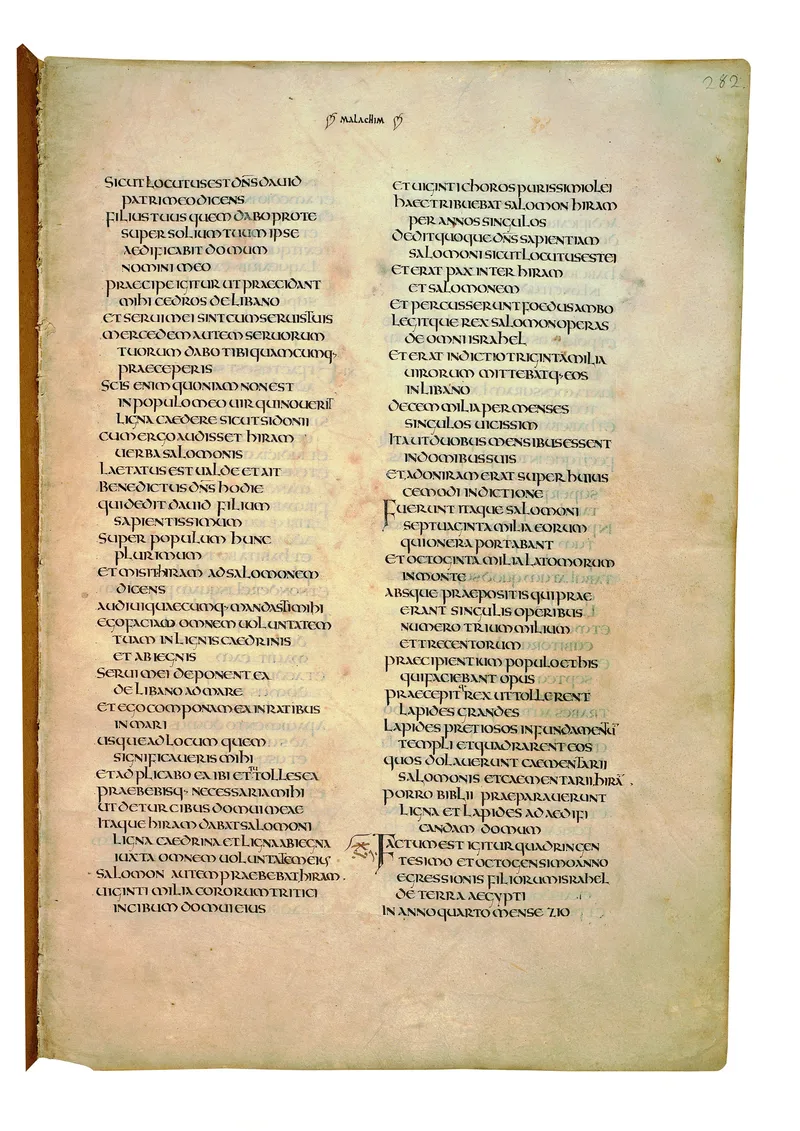 282
MALACHIM
SICUT LOCUTUS EST DN̄S DAUID
PATRI MEO DICENS
FILIUS TUUS QUEM DABO PRO TE
SUPER SOLIUM TUUM IPSE
AEDIFICABIT DOMUM
NOMINI MEO
PRAECIPE IGITUR UT PRAECIDANT
MIHI CEDROS DE LIBANO
ET SERUI MEI SINT CUM SERUIS TUIS
MERCEDEM AUTEM SERUORUM
TUORUM DABO TIBI QUAMCUMQ·
PRAECEPERIS
SCIS ENIM QUONIAM NON EST
IN POPULO MEO UIR QUI NOUERIT
LIGNA CAEDERE SICUT SIDONII
CUM ERGO AUDISSET HIRAM
UERBA SALOMONIS
LAETATUS EST UALDE ET AIT
BENEDICTUS DN̄S HODIE
QUI DEDIT DAUID FILIUM
SAPIENTISSIMUM
SUPER POPULUM HUNC
PLURIMUM
ET MISIT HIRAM AD SALOMONEM
DICENS
AUDIUI QUAECUMQ· MANDASTI MIHI
EGO FACIAM OMNEM UOLUNTATEM
TUAM IN LIGNIS CAEDRINIS
ET ABIEGNIS
SERUI MEI DEPONENT EA
DE LIBANO AD MARE
ET EGO COMPONAM EA IN RATIBUS
IN MARI
USQUE AD LOCUM QUEM
SIGNIFICAUERIS MIHI
ET ADPLICABO EA IBI ET TU TOLLES EA
PRAEBEBISQ· NECESSARIA MIHI
UT DETUR CIBUS DOMUI MEAE
ITAQUE HIRAM DABAT SALOMONI
LIGNA CAEDRINA ET LIGNA ABIEGNA
IUXTA OMNEM UOLUNTATEM EIUS
SALOMON AUTEM PRAEBEBAT HIRAM
UIGINTI MILIA CORORUM TRITICI
IN CIBUM DOMUI EIUS
ET UIGINTI CHOROS PURISSIMI OLEI
HAEC TRIBUEBAT SALOMON HIRAM
PER ANNOS SINGULOS
DEDIT QUOQUE DN̄S SAPIENTIAM
SALOMONI SICUT LOCUTUS EST EI
ET ERAT PAX INTER HIRAM
ET SALOMONEM
ET PERCUSSERUNT FOEDUS AMBO
LEGITQUE REX SALOMON OPERAS
DE OMNI ISRAHEL
ET ERAT INDICTIO TRIGINTA MILIA
UIRORUM MITTEBATQ· EOS
IN LIBANO
DECEM MILIA PER MENSES
SINGULOS UICISSIM
ITA UT DUOBUS MENSIBUS ESSENT
IN DOMIBUS SUIS
ET ADONIRAM ERAT SUPER HUIUS
CEMODI INDICTIONE
FUERUNT ITAQUE SALOMONI
SEPTUAGINTA MILIA EORUM
QUI ONERA PORTABANT
ET OCTOGINTA MILIA LATOMORUM
IN MONTE
ABSQUE PRAEPOSITIS QUI PRAE
ERANT SINGULIS OPERIBUS
NUMERO TRIUM MILIUM
ET TRECENTORUM
PRAECIPIENTIUM POPULO ET HIS
QUI FACIEBANT OPUS
PRAECEPIT REX UT TOLLERENT
LAPIDES GRANDES
LAPIDES PRETIOSOS IN FUNDAMENTU
TEMPLI ET QUADRARENT EOS
QUOS DOLAUERUNT CAEMENTARII
SALOMONIS ET CAEMENTARII HIRĀ
PORRO BIBLII PRAEPARAUERUNT
LIGNA ET LAPIDES AD AEDIFI
CANDAM DOMUM
FACTUM EST IGITUR QUADRINGEN
TESIMO ET OCTOGENSIMO ANNO
EGRESSIONIS FILIORUM ISRAHEL
DE TERRA AEGYPTI
IN ANNO QUARTO MENSE ZIO